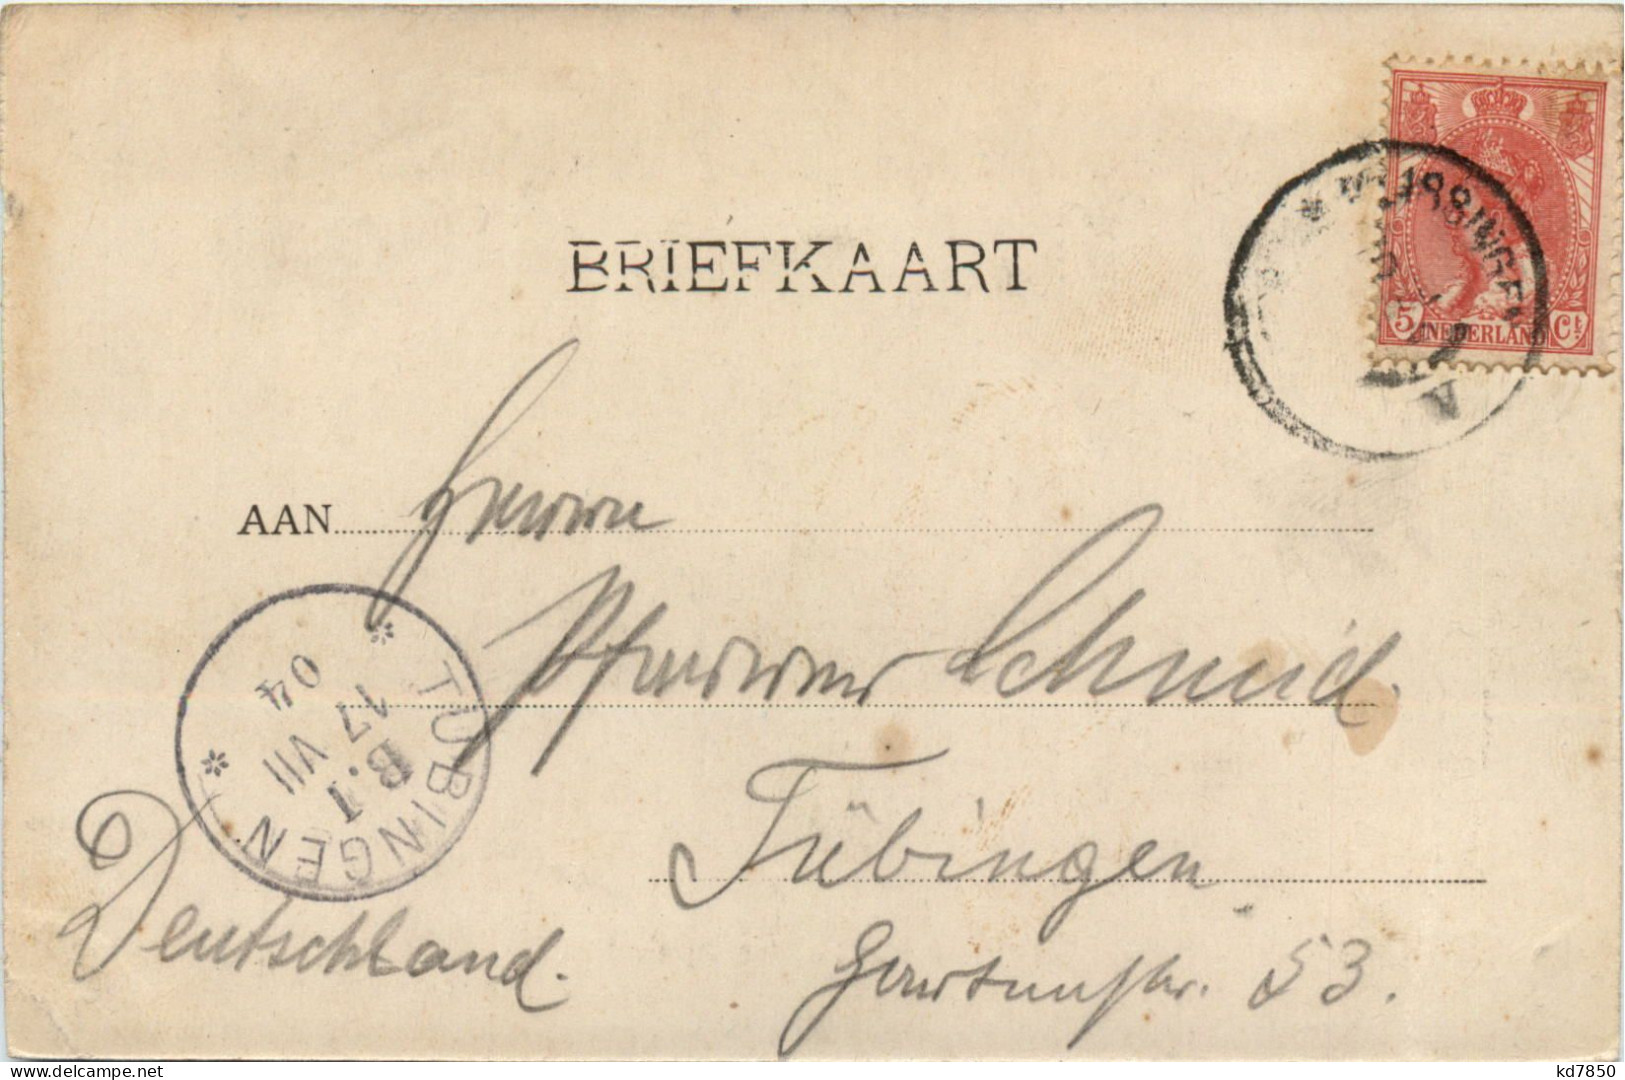 BRIEFKAART
5 NEDERLAND Ct
AAN Herrn
Pfarrer Schmid.
Tübingen
Gartenstr. 53.
Deutschland.
TÜBINGEN
B.1
17 VII
04
kd7850